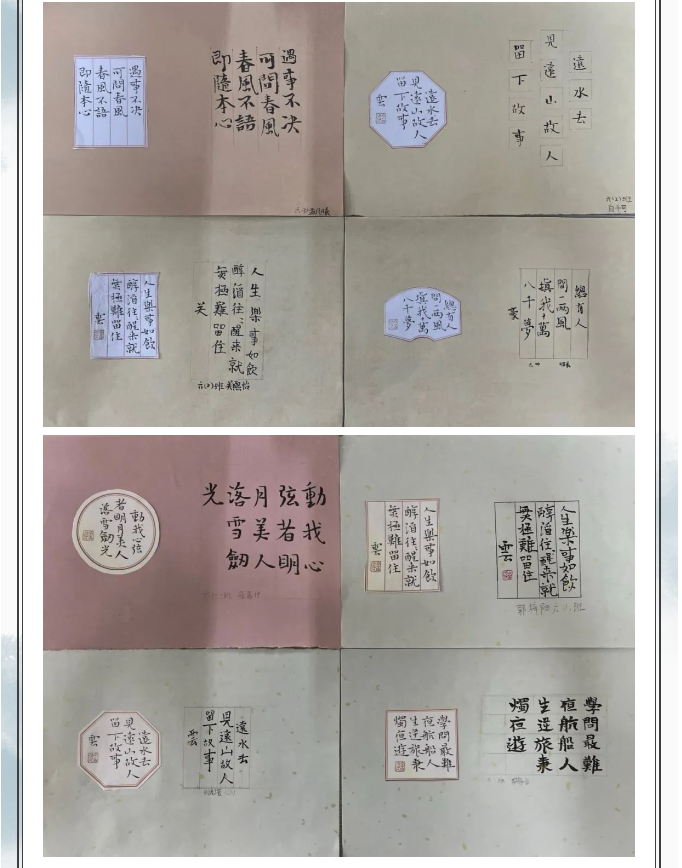 遇事不決
可問春風
春風不語
即隨本心
遇事不决
可問春風
春風不語
即隨本心
遠水去
見遠山故人
留下故事
雲
遠水去
見遠山故人
留下故事
人生樂事如飲
醇酒往、醒來就
無極難留住
雲
人生樂事如飲
醇酒往、醒來就
無極難留住
總有人
間一兩風
填我十萬
八千夢
總有人
間一兩風
填我十萬
八千夢
動我心弦
者明月美人
落雪劍光
動我心
弦者明
月美人
落雪劍
光
人生樂事如飲
醇酒往、醒來就
無極難留住
雲
人生樂事如飲
醇酒往、醒來就
無極難留住
雲
遠水去
見遠山故人
留下故事
雲
遠水去
見遠山故人
留下故事
雲
學問最難
夜航船人
生逆旅秉
燭夜遊
學問最難
夜航船人
生逆旅秉
燭夜遊